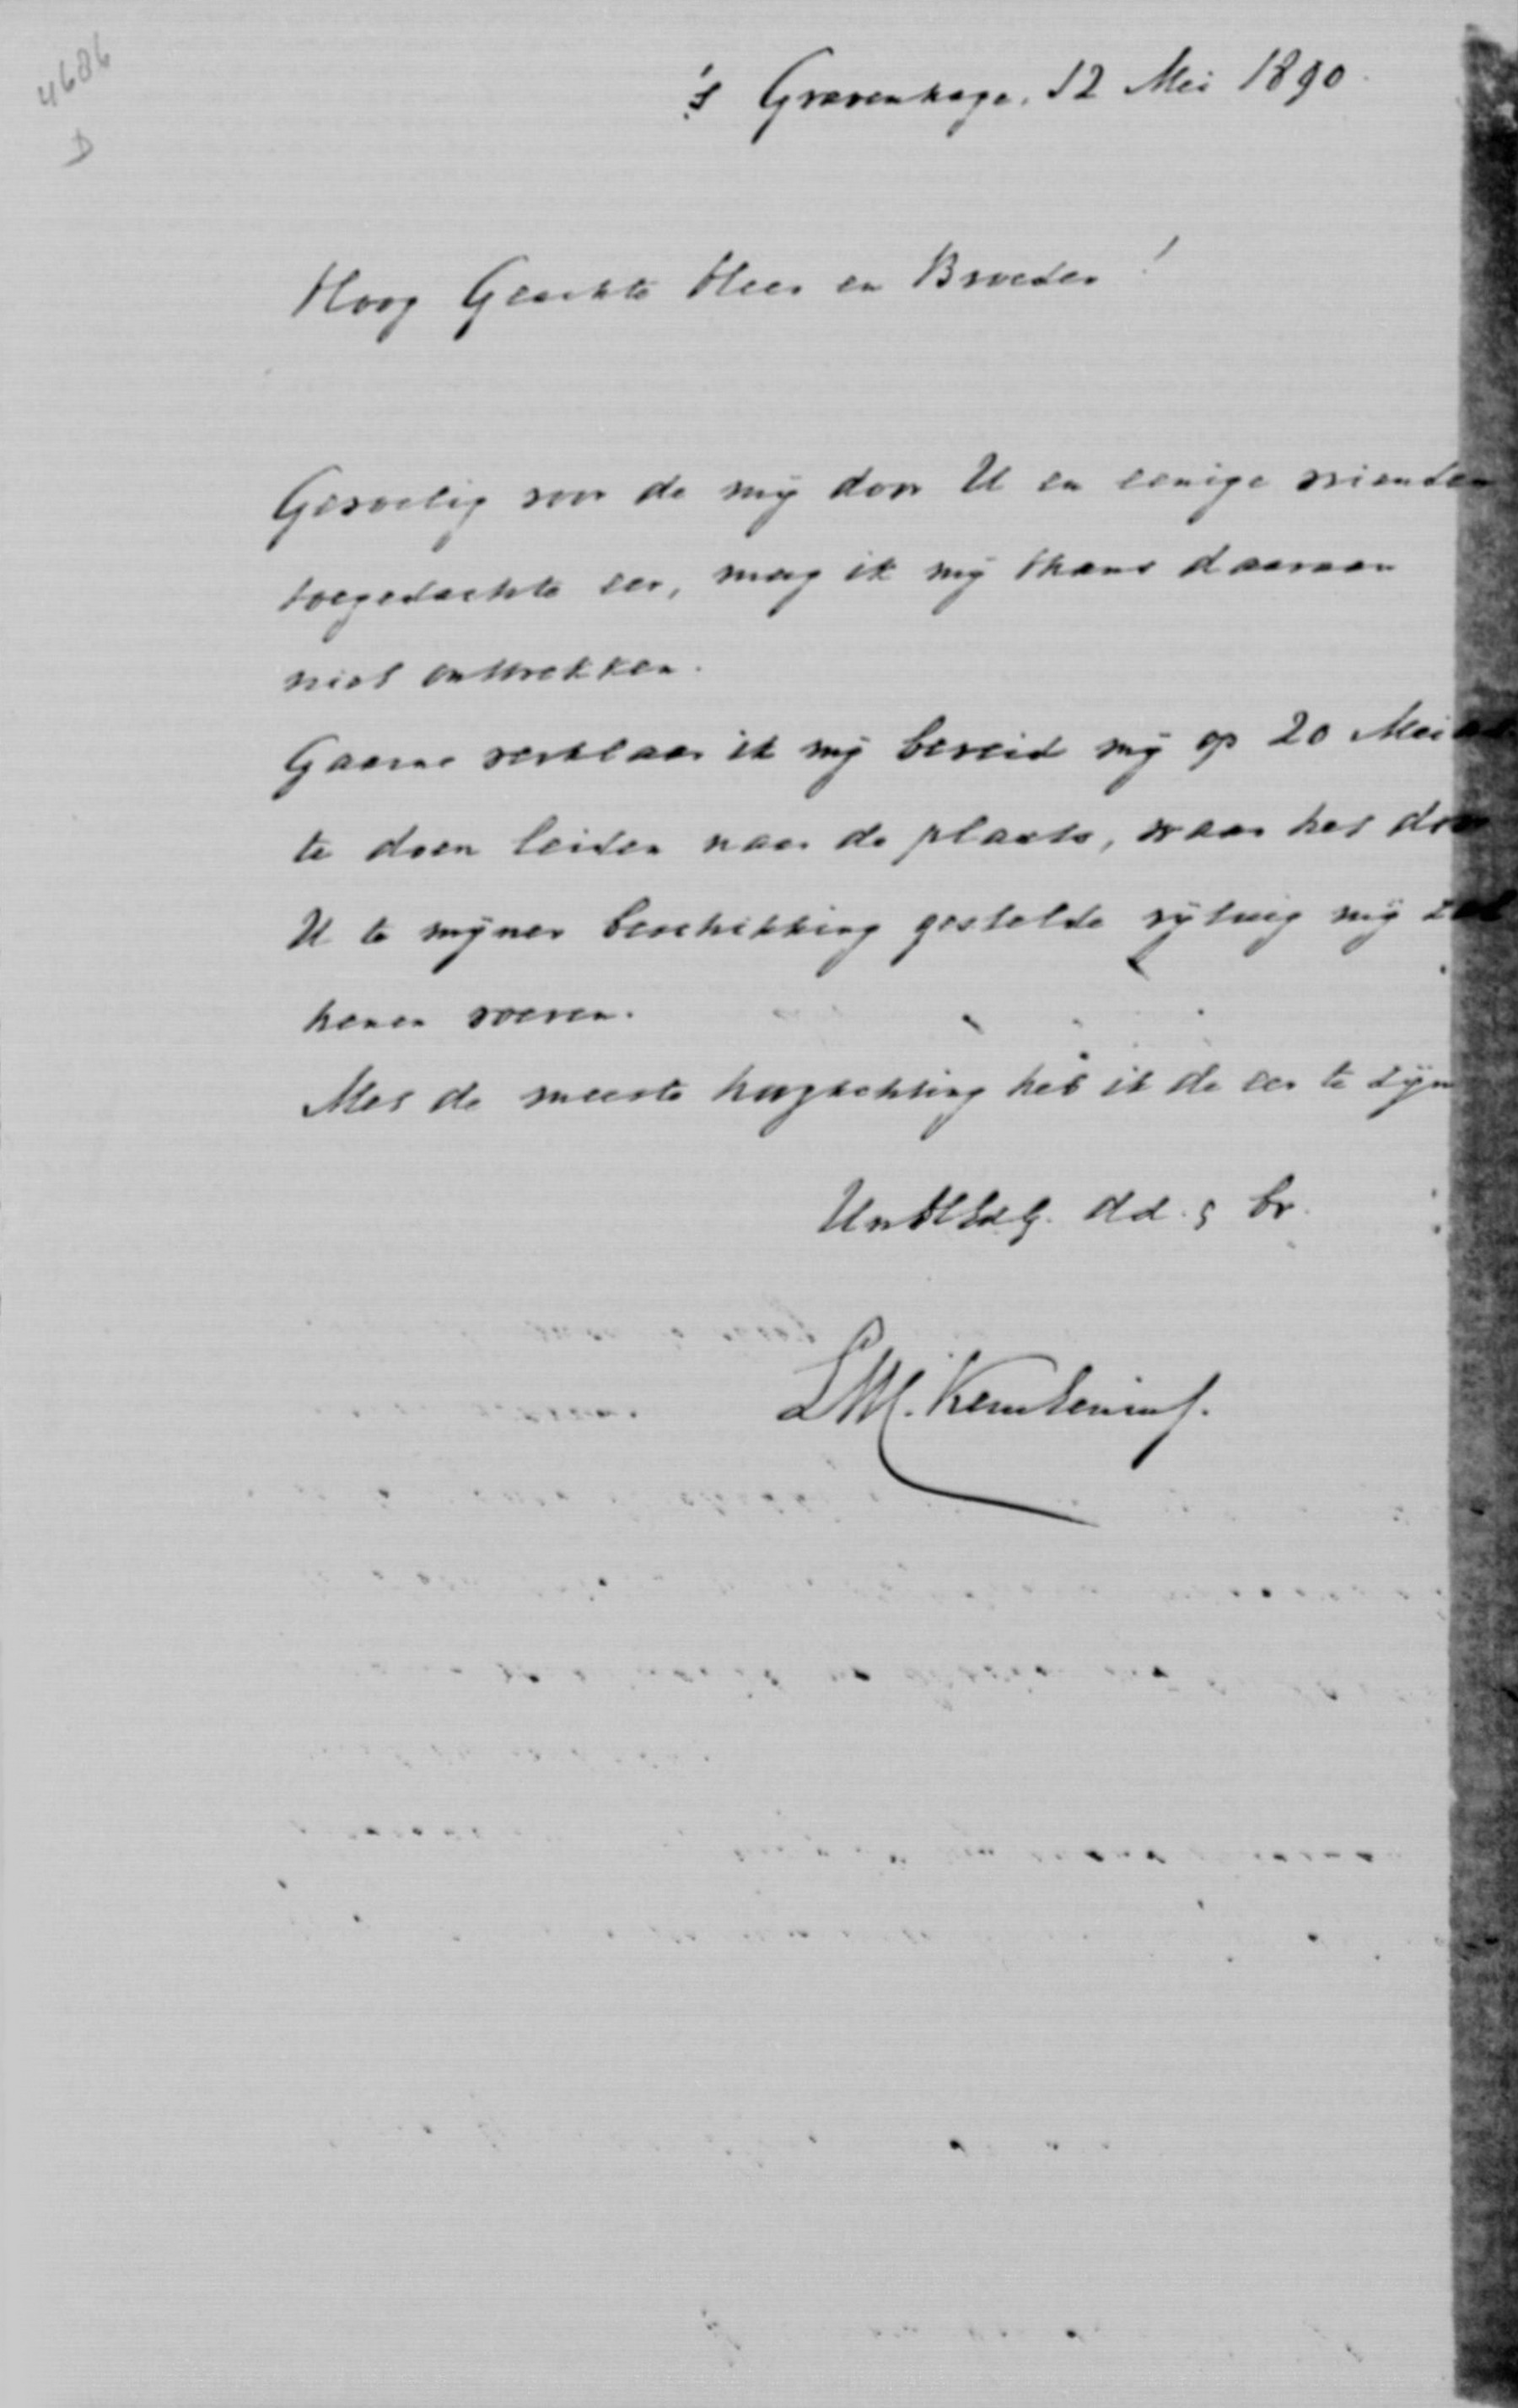 4686
D
's Gravenhage, 12 Mei 1890.
Hoog Geachte Heer en Broeder!
Gevoelig voor de mij door U en eenige vrienden
toegedachte eer, mag ik mij thans daaraan
niet onttrekken.
Gaarne verklaar ik mij bereid mij op 20 Mei
te doen leiden naar de plaats, waar het door
U te mijner beschikking gestelde rijtuig mij zal
henen voeren.
Met de meeste hoogachting heb ik de eer te zijn
UwHEdG. dd. & br.